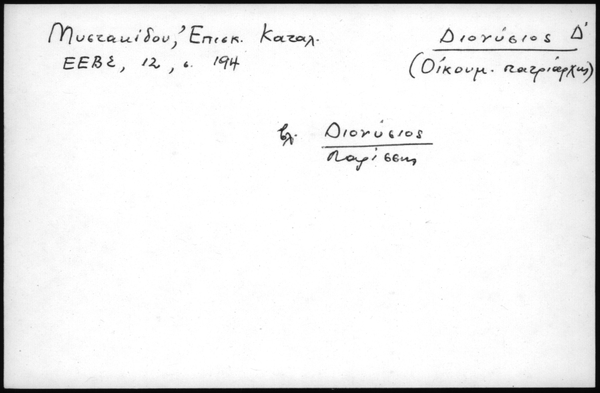 Μυστακίδου, Ἐπισκ. Καταλ.
ΕΕΒΣ, 12, σ. 194
Διονύσιος Δ'
(Οἰκουμ. πατριάρχης)
βλ. Διονύσιος
Λαρίσσης